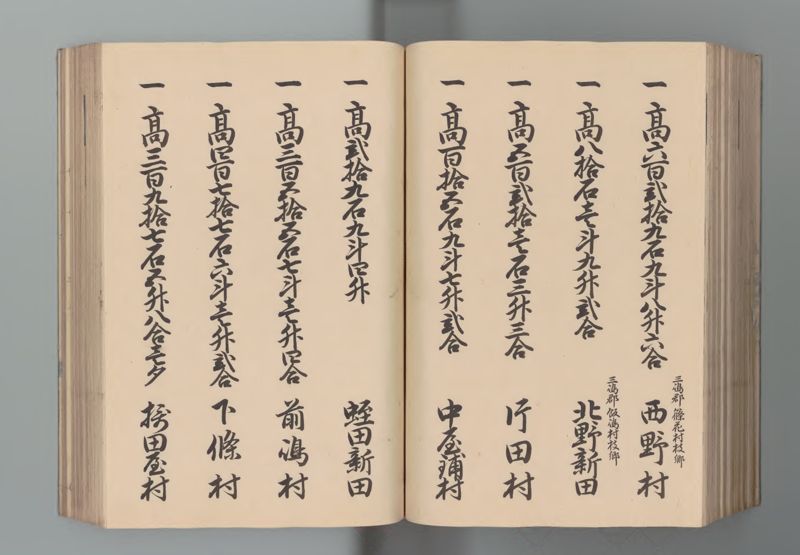 一 高六百弐拾九石九斗八升六合
三嶋郡篠花村枝郷
西野村
一 高八拾石壱斗九升弐合
三嶋郡飯嶋村枝郷
北野新田
一 高五百弐拾壱石三升三合
片田村
一 高百拾五石九斗七升弐合
中屋鋪村
一 高弐拾九石九斗四升
蛭田新田
一 高三百五拾五石七斗壱升四合
前嶋村
一 高四百七拾七石六斗壱升弐合
下條村
一 高三百九拾七石五升八合壱夕
摂田屋村